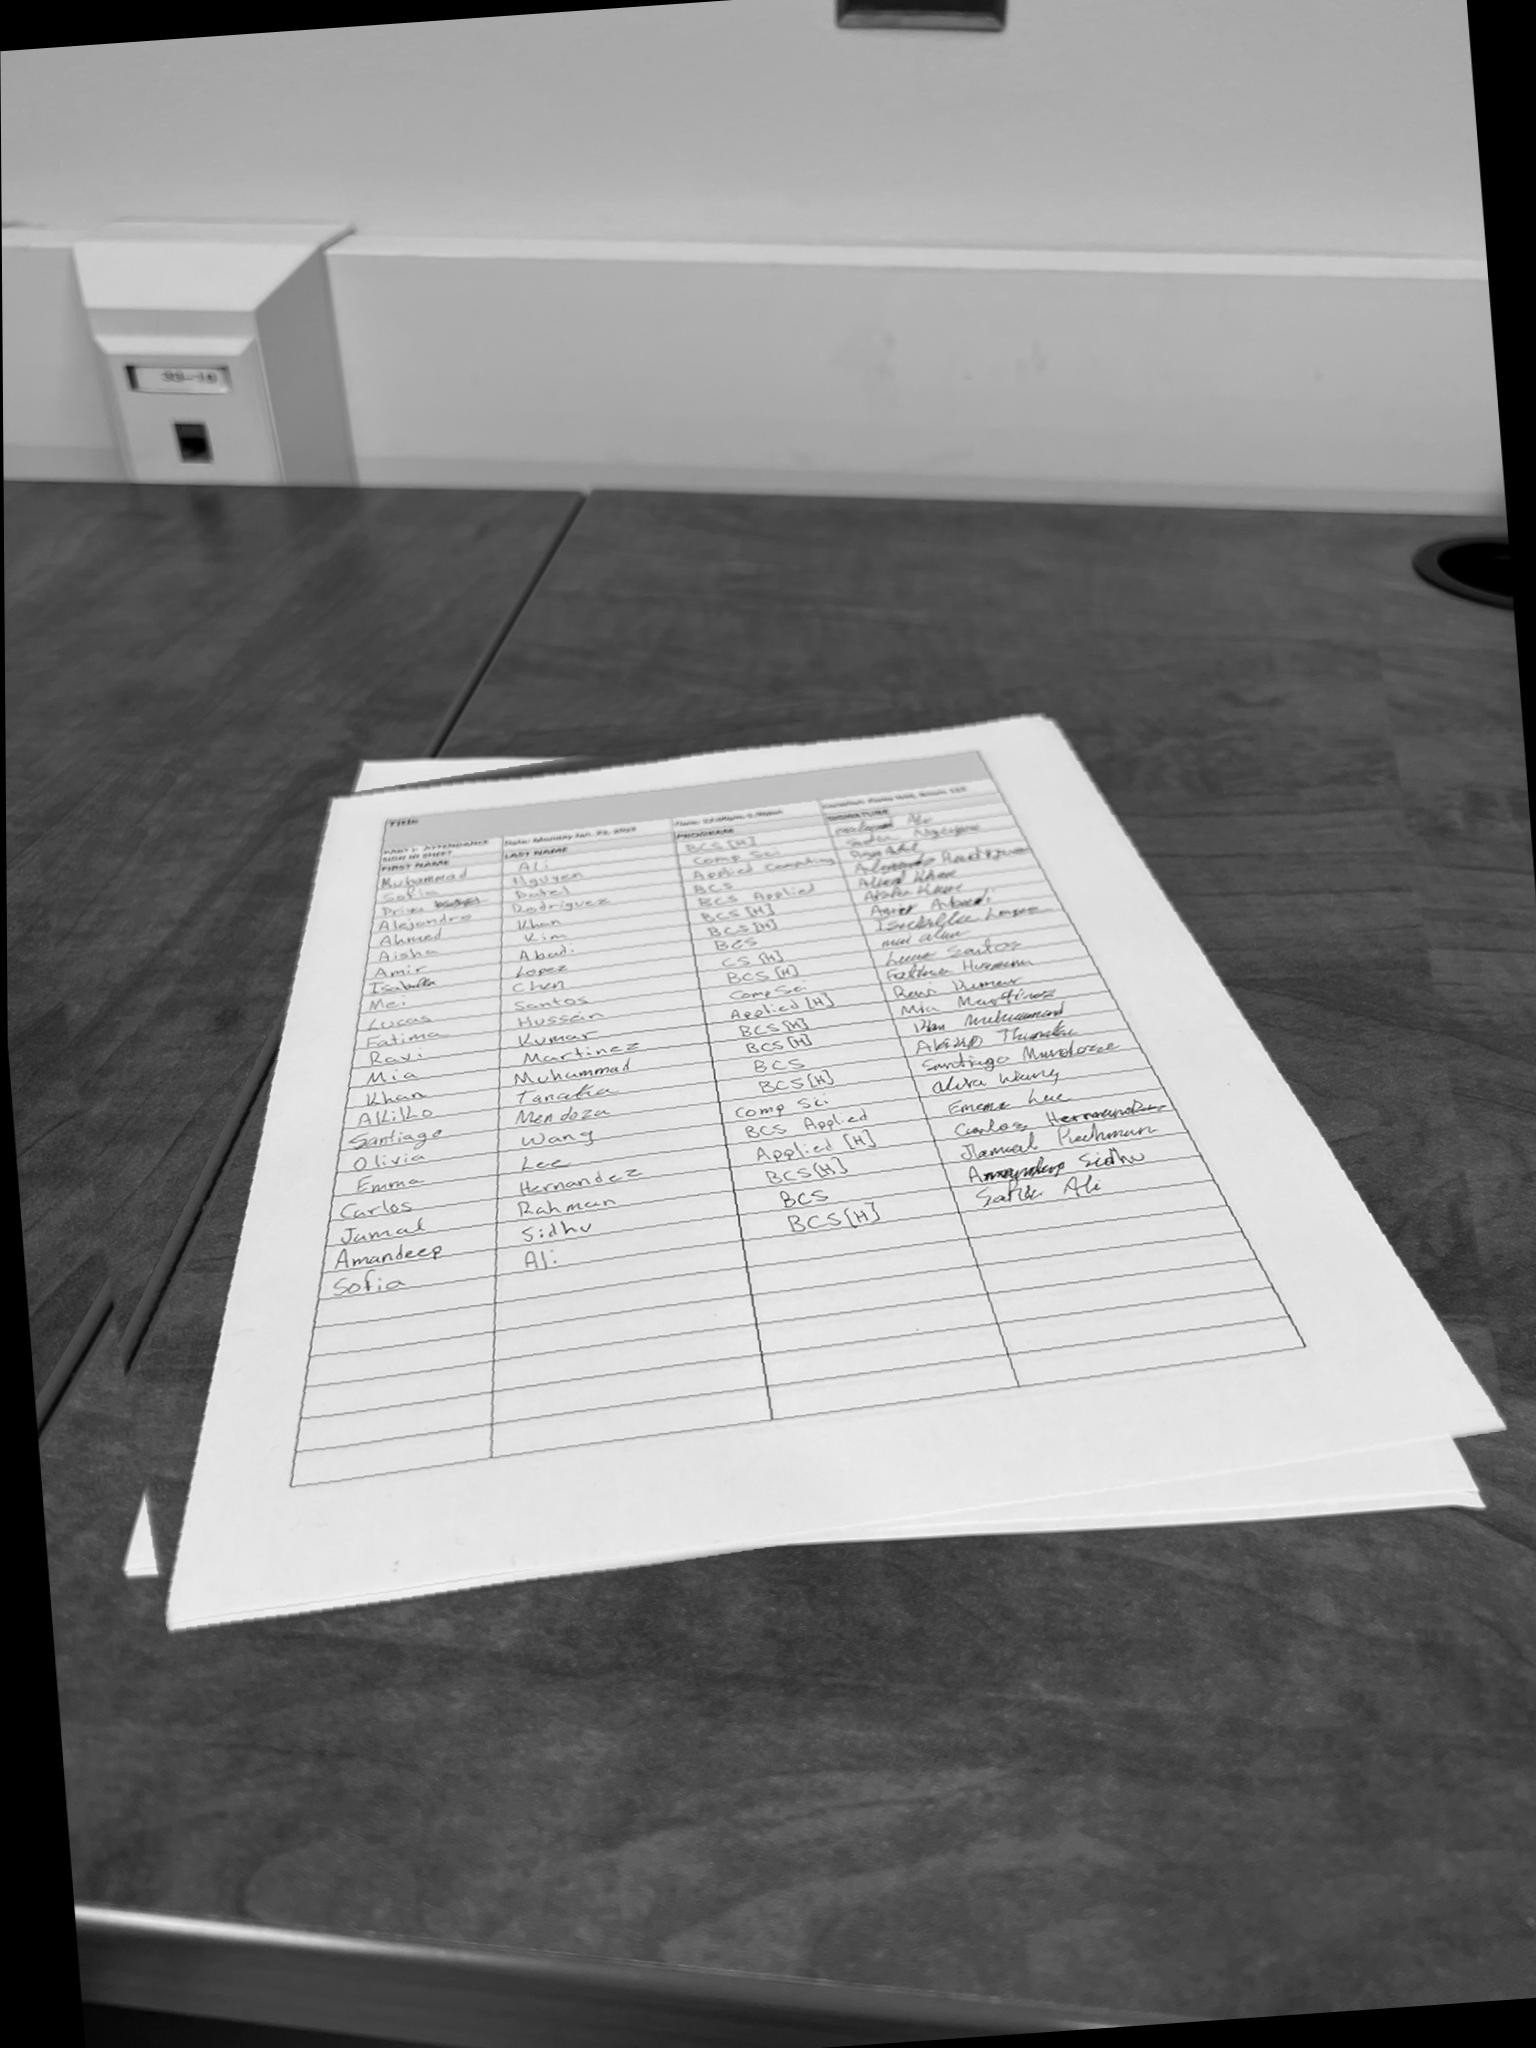 Title
PART I: ATTENDANCE SIGN IN SHEET Date: Monday Jan. 23, 2023
FIRST NAME LAST NAME PROGRAM SIGNATURE
Muhammad Ali BCS [H] Ali
Sofia Nguyen Comp Sci Nguyen
Priya Patel Applied Computing
Alejandro Rodriguez BCS Alejandro Rodriguez
Ahmed Khan BCS Applied Ahmed Khan
Aisha Kim BCS [H] Aisha Kim
Amir Abadi BCS [H] Amir Abadi
Isabella Lopez BCS Isabella Lopez
Mei Chen CS [H]
Lucas Santos BCS [H] Santos
Fatima Hussein Comp Sci Fatima
Ravi Kumar Applied [H] Ravi Kumar
Mia Martinez BCS [H] Mia Martinez
Khan Muhammad BCS [H] Muhammad
Akiko Tanaka BCS
Santiago Mendoza BCS [H] Santiago Mendoza
Olivia Wang Comp Sci Wang
Emma Lee BCS Applied Emma Lee
Carlos Hernandez Applied [H] Carlos Hernandez
Jamal Rahman BCS [H] Jamal Rahman
Amandeep Sidhu BCS Amandeep Sidhu
Sofia Ali BCS [H] Sofia Ali